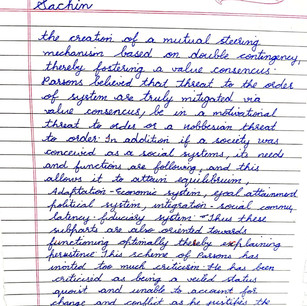 Sachin
the creation of a mutual steering
mechanism based on double contingency,
thereby fostering a value consencus.
Parsons believed that threat to the order
of system are truly mitigated via
value consencus, be in a motivational
threat to order or a hobbesian threat
to order. In addition if a society was
conceived as a social systems, its needs
and functions are following, and this
allows it to attain equilibrium,
Adaptation - Economic system, goal attainment
political system, integration - social commu,
latency - fiduciary system - Thus these
subparts are also oriented towards
functioning optimally thereby explaining
persistence This scheme of Parsons has
invited too much criticism. He has been
criticised as being a veiled status
quoist and unable to account for
change and conflict as he justifies the